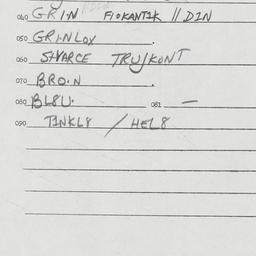 040 GRIN FIOKANTIK // DIN
050 GRINLOX
060 SWARCE TRUJKONT
070 BROIN
080 BLBU. 081 —
090 TINKLY / HEL8